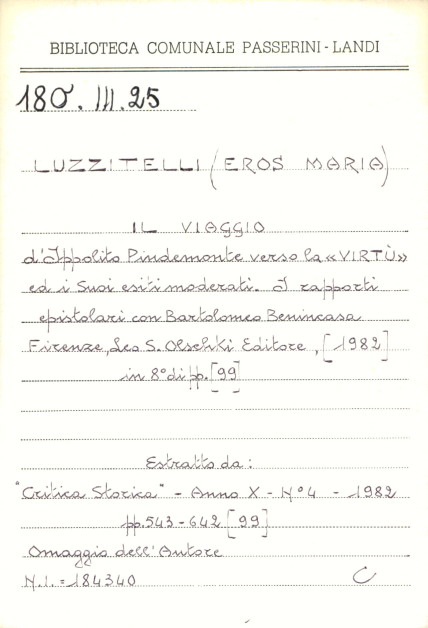 BIBLIOTECA COMUNALE PASSERINI-LANDI
180. III. 25
LUZZITELLI (EROS MARIA)
IL VIAGGIO
d'Ippolito Pindemonte verso la «VIRTÙ»
ed i Suoi esiti moderati. I rapporti
epistolari con Bartolomeo Benincasa
Firenze, Leo S. Olschki Editore, [1982]
in 8° di pp. [99]
Estratto da:
"Critica Storica" - Anno X - N° 4 - 1982
pp. 543-642 [99]
Omaggio dell'Autore
N.I. = 184340 C